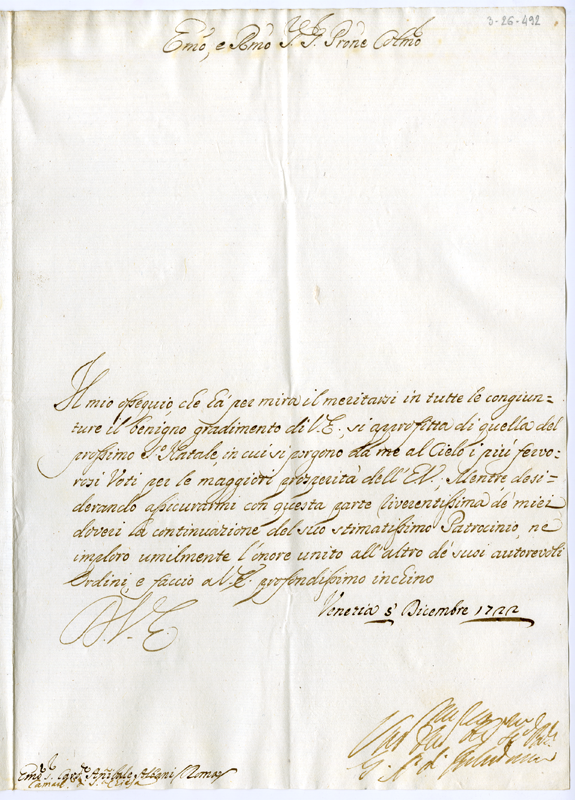 3-26-492
Emo, e Rmo Sr. Sr. Prone Colmo
Il mio ossequio, che hà per mira il meritarsi in tutte le congiun=
ture il benigno gradimento di V. E., si approfitta di quella del
prossimo So. Natale, in cui si porgono da me al Cielo i più fervo=
rosi Voti per le maggiori prosperità dell'E.V. Mentre desi=
derando assicurarmi con questa parte riverentissima de' miei
doveri la continuazione del suo stimatissimo Patrocinio, ne
imploro umilmente l'onore unito all'altro de' suoi autorevoli
Ordini, e faccio a V. E. profondissimo inchino
Venezia 5 Dicembre 1722
D. V. E.
Emo. Sr. Card. Annibale Albani Roma
Camarl. di S. Chiesa